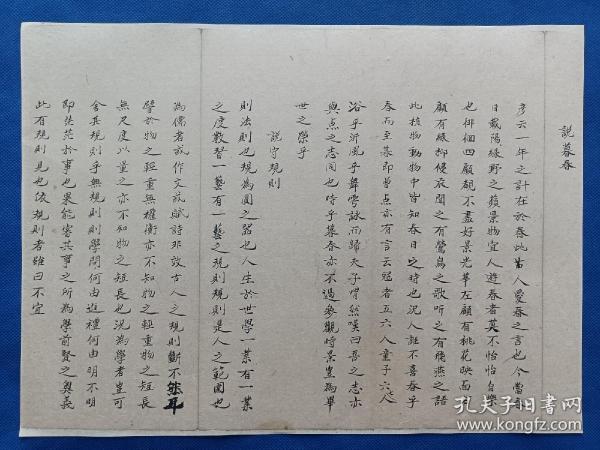 說暮春
彥云一年之計在於春此昔人愛春之言也今當春
日載陽綠野之蘋景物宜人遊春者莫不怡怡自樂
也徘徊四顧覩不盡好景光華左顧有桃花映面右
顧有綠柳侵衣聞之有鶯鳥之歌听之有飛燕之語
此植物動物中皆知春日之時也況人誰不喜春乎
春而至暮即曾点亦有言云冠者五六人童子六七人
浴乎沂風乎舞雩詠而歸夫子喟然嘆曰吾之志亦
與点之志同也時乎暮春亦不過參觀時景豈為畢
世之樂乎
說守規則
則法則也規為圓之器也人生於世學一業有一業
之度數習一藝有一藝之規則規則是人之範圍也
為儒者或作文或賦詩非效古人之規則斷不能耳
譬於物之輕重無權衡亦不知物之輕重物之短長
無尺度以量之亦不知物之短長也況為學者豈可
舍其規則乎無規則則學問何由進禮何由明不明
即茫茫於事也奚能審其事之所為學前賢之奧義
此有規則見也依規則者雖曰不宜
孔夫子旧书网
book.kongfz.com